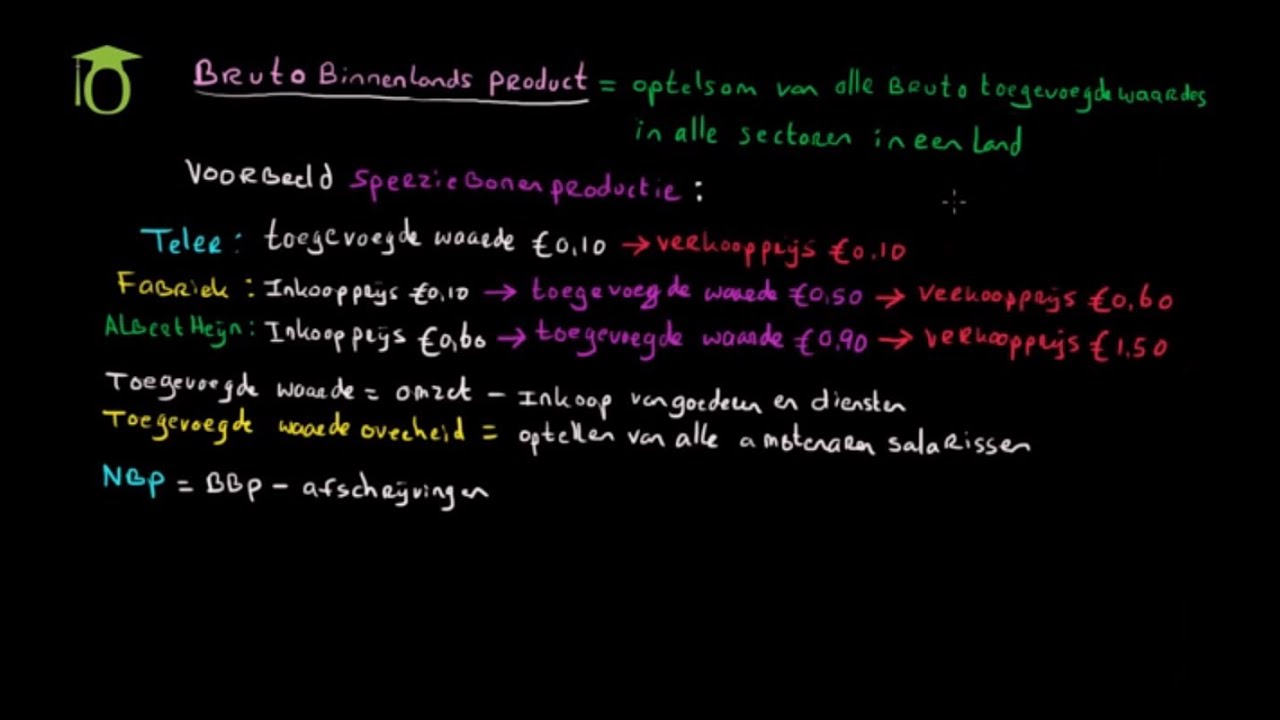 Bruto Binnenlands product = optelsom van alle Bruto toegevoegde waardes
in alle sectoren in een land
Voorbeeld sperziebonenproductie:
Teler: toegevoegde waarde €0,10 → verkoopprijs €0,10
Fabriek: Inkoopprijs €0,10 → toegevoegde waarde €0,50 → verkoopprijs €0,60
Albert Heijn: Inkoopprijs €0,60 → toegevoegde waarde €0,90 → verkoopprijs €1,50
Toegevoegde waarde = omzet - Inkoop van goederen en diensten
Toegevoegde waarde overheid = optellen van alle ambtenaren salarissen
NBp = BBp - afschrijvingen